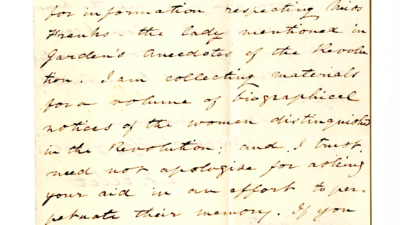 for information respecting Miss
Franks - the lady mentioned in
Garden's Anecdotes of the Revolu-
tion. I am collecting materials
for a volume of biographical
notices of the women distinguished
in the Revolution; and I trust,
need not apologise for asking
your aid in an effort to per-
petuate their memory. If you